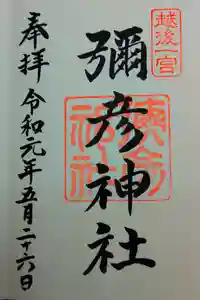 越後一宮
彌彦神社
奉拝
令和元年五月二十六日